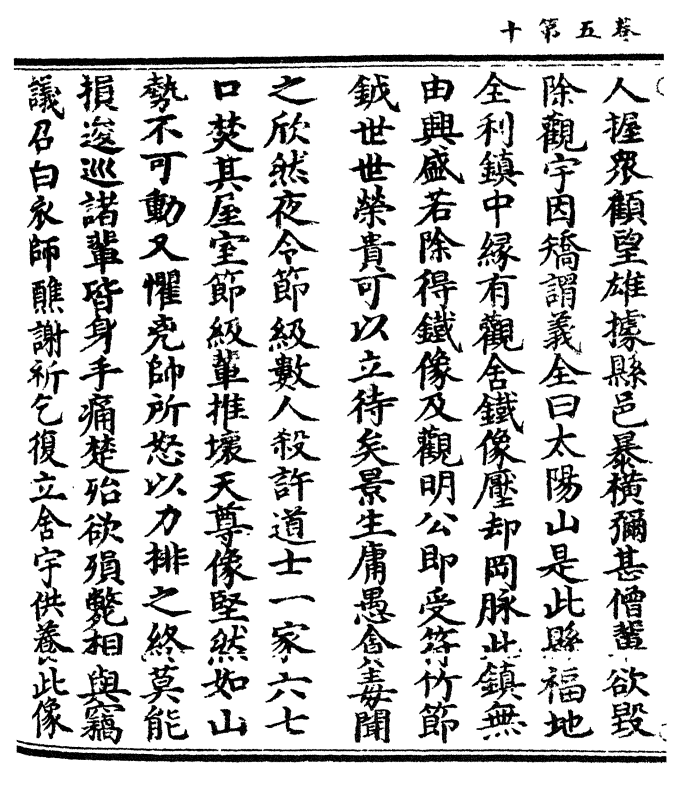 卷五第十
人握眾顧望雄據縣邑暴橫彌甚僧輩欲毀
除觀宇因矯謂義全曰太陽山是此縣福地
全利鎮中緣有觀舍鐵像壓却岡脉此鎮無
由興盛若除得鐵像及觀明公即受符竹節
鉞世世榮貴可以立待矣景生庸愚貪婪聞
之欣然夜令節級數人殺許道士一家六七
口焚其屋室節級輩推壞天尊像堅然如山
勢不可動又懼兇帥所怒以力排之終莫能
損逡巡諸輩皆身手痛楚殆欲殞斃相與竊
議召白衣師醮謝祈乞復立舍宇供養此像